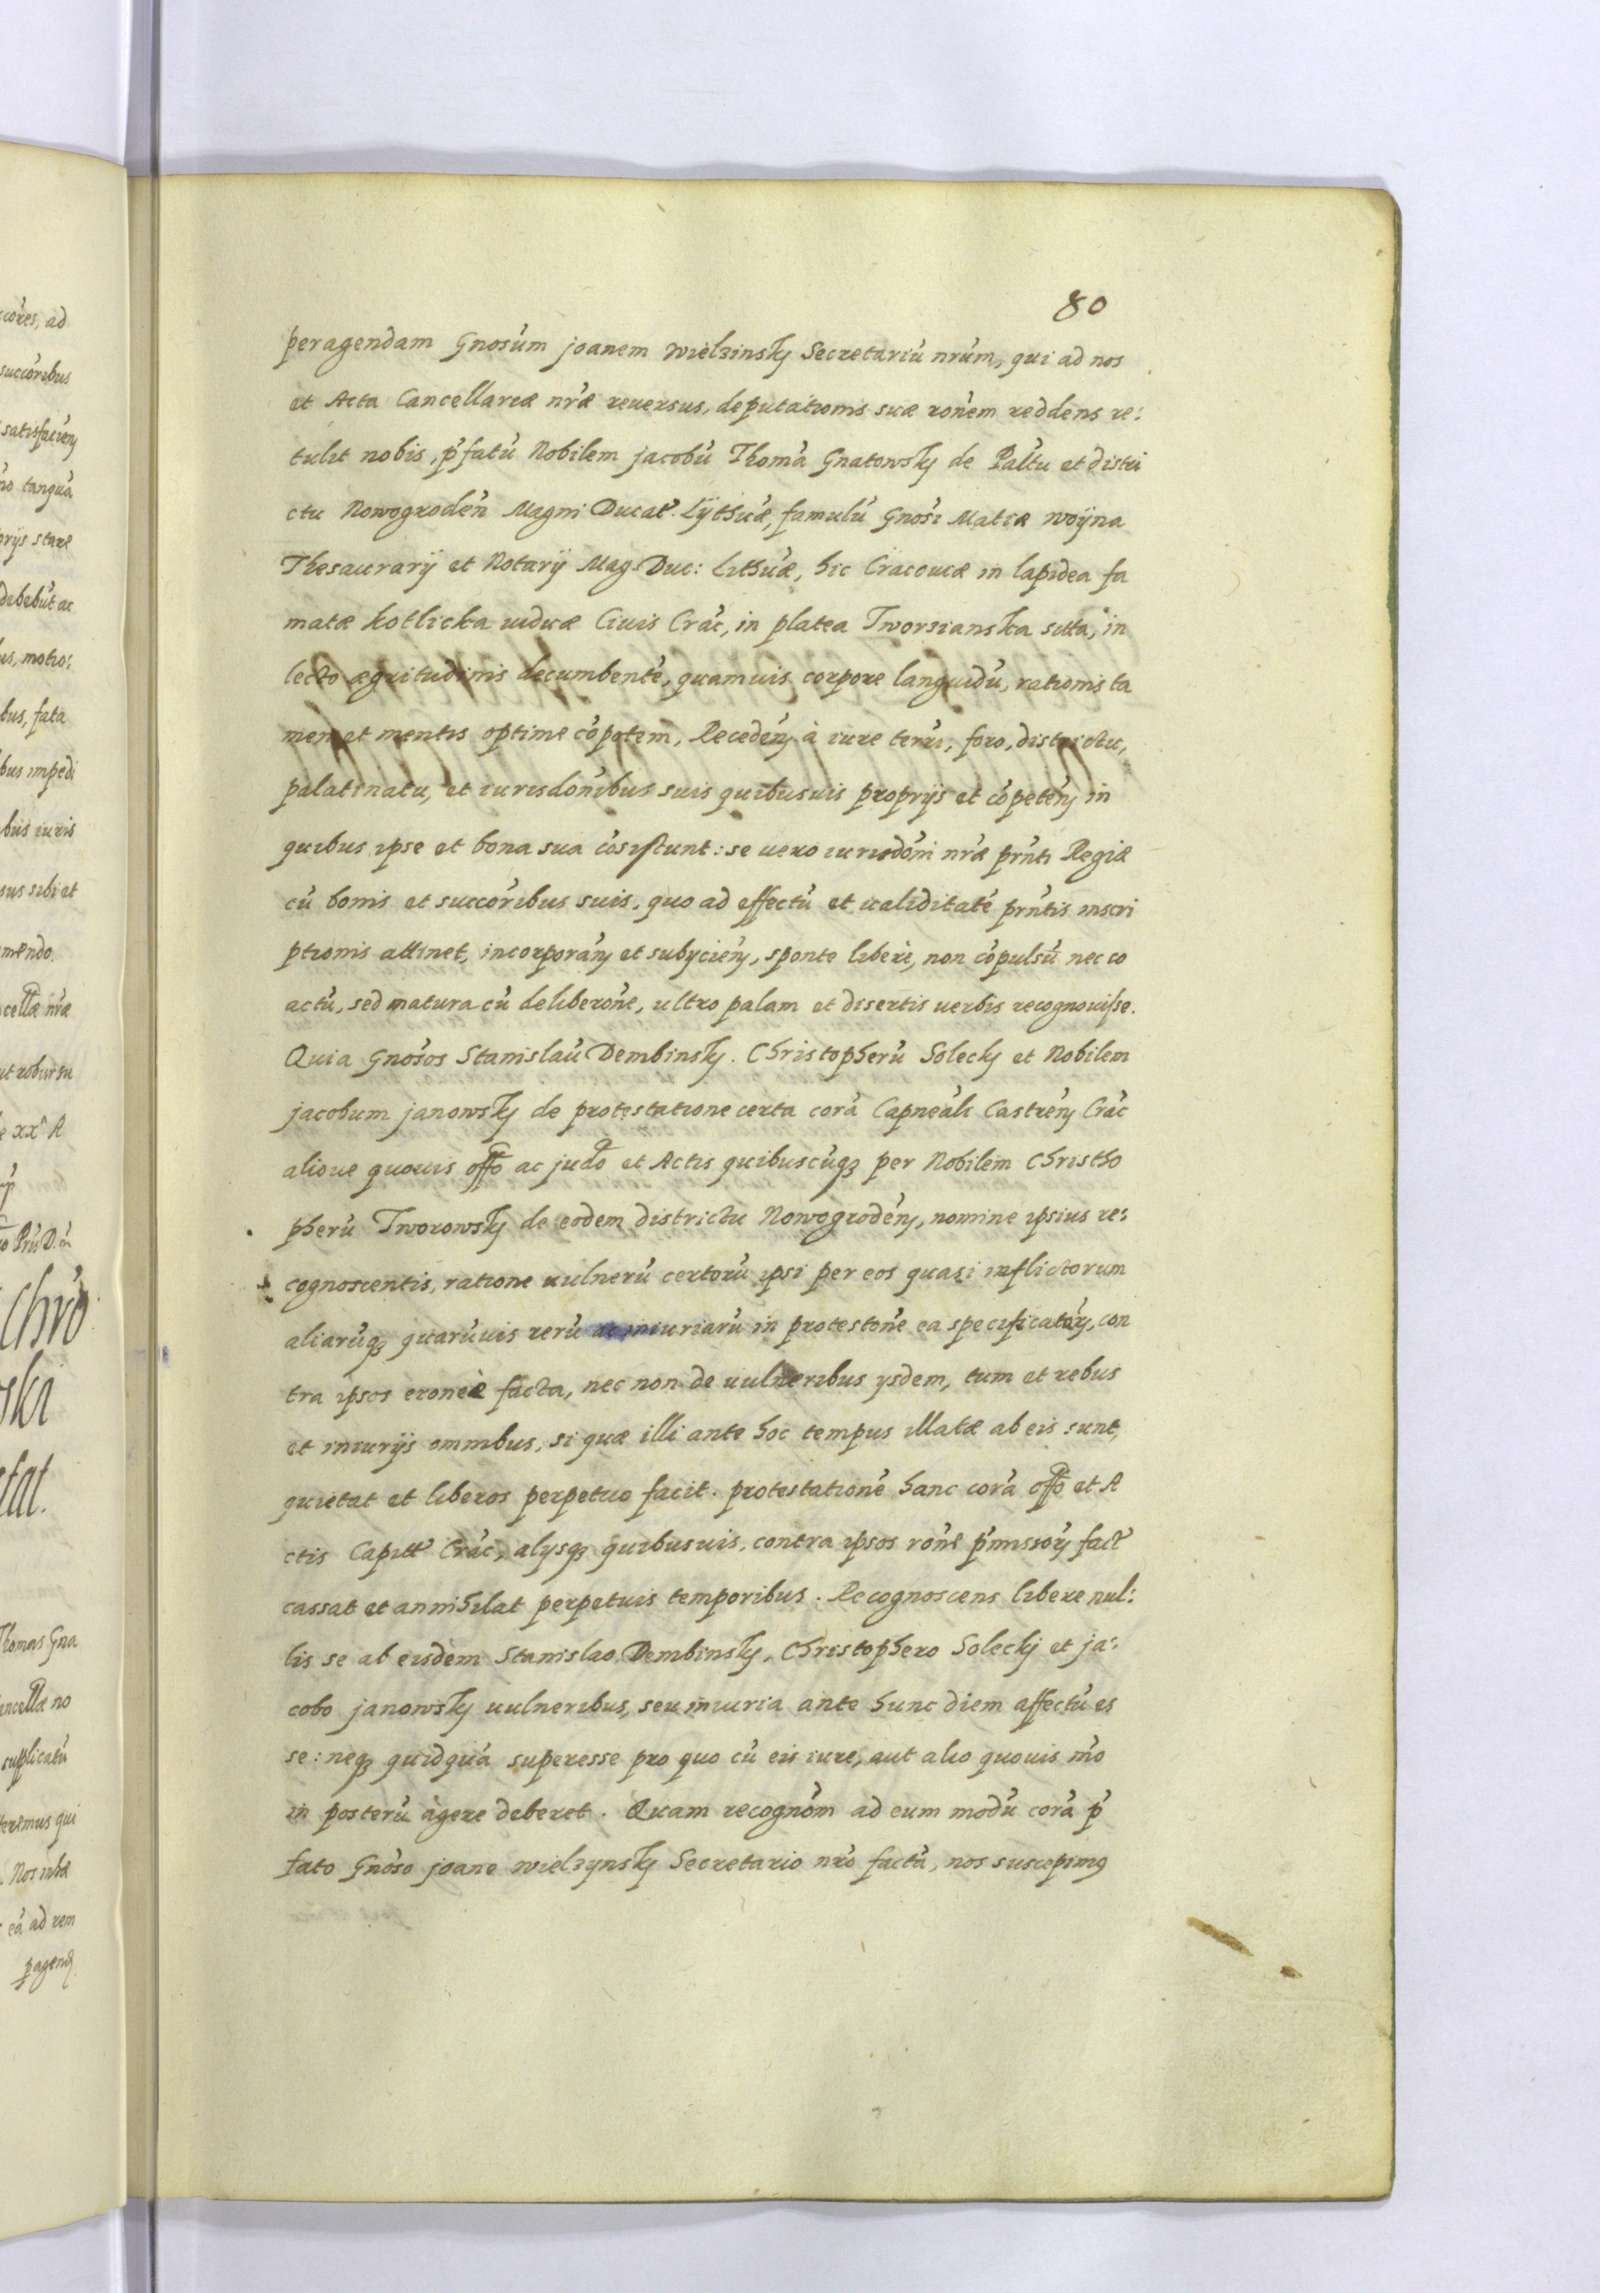 80
peragendam Gnosũm joanem Wielzinsky Secretariũ nrũm, qui ad nos
et Acta Cancellariæ nr̃æ reuersus, deputationis suæ rõnem reddens re:
tulit nobis, p̃fatũ Nobilem jacobũ Thomã Gnatowsky de Pal̃tu et distri
ctu Nowogrodeñ Magni Ducat. Lÿthuæ, famulũ Gnosi Matiæ Woÿna
Thesaurarÿ et Notarÿ Mag. Duc: Lithuæ, hic Cracouiæ in lapidea fa
matæ Kotlicka uiduæ Ciuis Crãc, in platea Tworzianska sitta, in
lecto ægritudinis decumbentẽ, quamuis corpore languidũ, rationis ta
men et mentis optime cõpotem, Recedeñ à iure terri, foro, districtu,
palatinatu, et iurisdoñibus suis quibusuis proprijs et cõpeteñ in
quibus ipse et bona sua cõsistunt: se uero iurisdoñi nr̃æ prñti Regiæ
cũ bonis et succoribus suis, quo ad effectũ et ualiditatẽ prñtis inscri
ptionis attinet, incorporañ et subycieñ, sponte liberè, non cõpulsũ nec co
actũ, sed matura cũ deliberoñe, ultro palam et disertis uerbis recognouisse.
Quia Gnosos Stanislaũ Dembinsky. Christopherũ Solecky et Nobilem
jacobum janowsky de protestatione certa corã Capneali Castreñ Crãc
alioue quouis offo ac judo et Actis quibuscũq3 per Nobilem Christho
pherũ Tworowsky de eodem districtu Nowogrodeñ, nomine ipsius re:
cognoscentis, ratione uulnerũ certorũ ipsi per eos quasi inflictorum
aliarũq3 quarũuis rerũ ac iniuriarũ in protestoñe ea specificatoꝝ, con
tra ipsos eroneè facta, nec non de uulneribus ysdem, tum et rebus
et iniurijs omnibus, si quæ illi ante hoc tempus illatæ ab eis sunt,
quietat et liberos perpetuo facit. protestationẽ hanc corã offo et A
ctis Capitt Crãc, alysq3 quibusuis, contra ipsos roñe p̃missoꝝ fact
cassat et annihilat perpetuis temporibus. Recognoscens libere nul:
lis se ab eisdem Stanislao Dembinsky, Christophero Solecky et ja:
cobo janowsky uulneribus, seu iniuria ante hunc diem affectũ es
se: neq3 quidquã superesse pro quo cũ eis iure, aut alio quouis mõ
in posterũ agere deberet. Quam recognoñ ad eum modũ corã p̃
fato Gnoso joane Wielzynsky Secretario nrõ factã, nos suscepimus